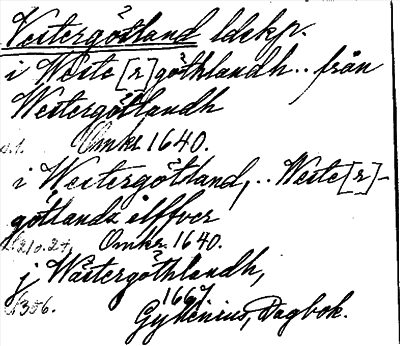 Vestergötland ldskp.
i Weste[r]göthlandh.. från
Westergötlandh
Omkr. 1640.
i Westergötland,.. Weste[r]-
götlandz älffver
210.27, Omkr. 1640.
j Wästergöthlandh,
1667
356. Gyllenius, Dagbok.